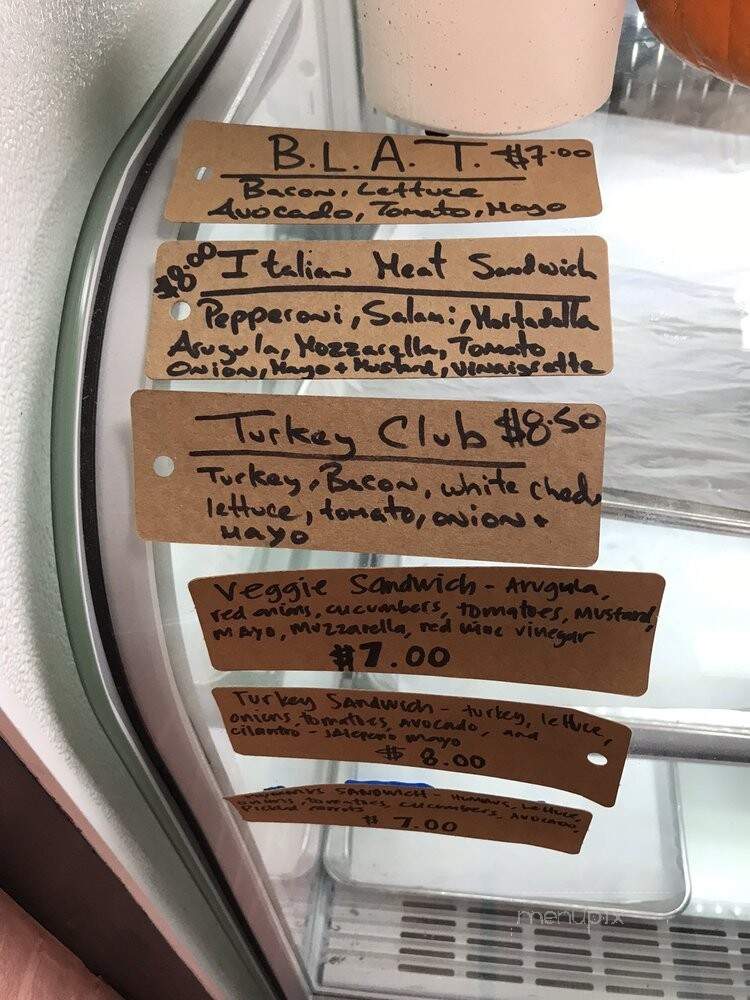 B.L.A.T. $7.00
Bacon, Lettuce
Avocado, Tomato, Mayo
$8.00 Italian Meat Sandwich
Pepperoni, Salami, Mortadella
Arugula, Mozzarella, Tomato
Onion, Mayo + Mustard, Vinaigrette
Turkey Club $8.50
Turkey, Bacon, white ched
lettuce, tomato, onion +
Mayo
Veggie Sandwich - Arugula,
red onions, cucumbers, tomatoes, mustard,
mayo, muzzarella, red wine vinegar
$7.00
Turkey Sandwich - turkey, lettuce,
onions, tomatoes, avocado, and
cilantro - jalepeno mayo
$8.00
Sandwich - Hummus, lettuce,
onions, tomatoes, cucumbers, avocado,
Pickled carrots
$7.00
menupix